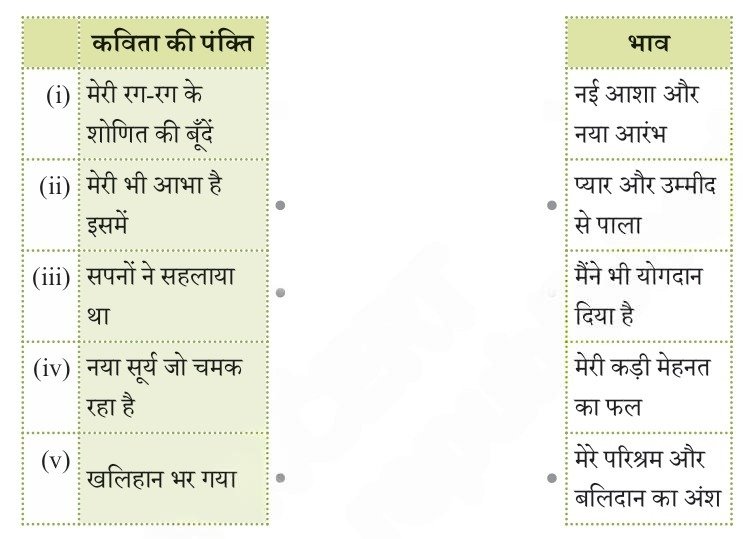 कविता की पंक्ति
भाव
(i) मेरी रग-रग के
शोणित की बूँदें
नई आशा और
नया आरंभ
(ii) मेरी भी आभा है
इसमें
प्यार और उम्मीद
से पाला
(iii) सपनों ने सहलाया
था
मैंने भी योगदान
दिया है
(iv) नया सूर्य जो चमक
रहा है
मेरी कड़ी मेहनत
का फल
(v) खलिहान भर गया
मेरे परिश्रम और
बलिदान का अंश